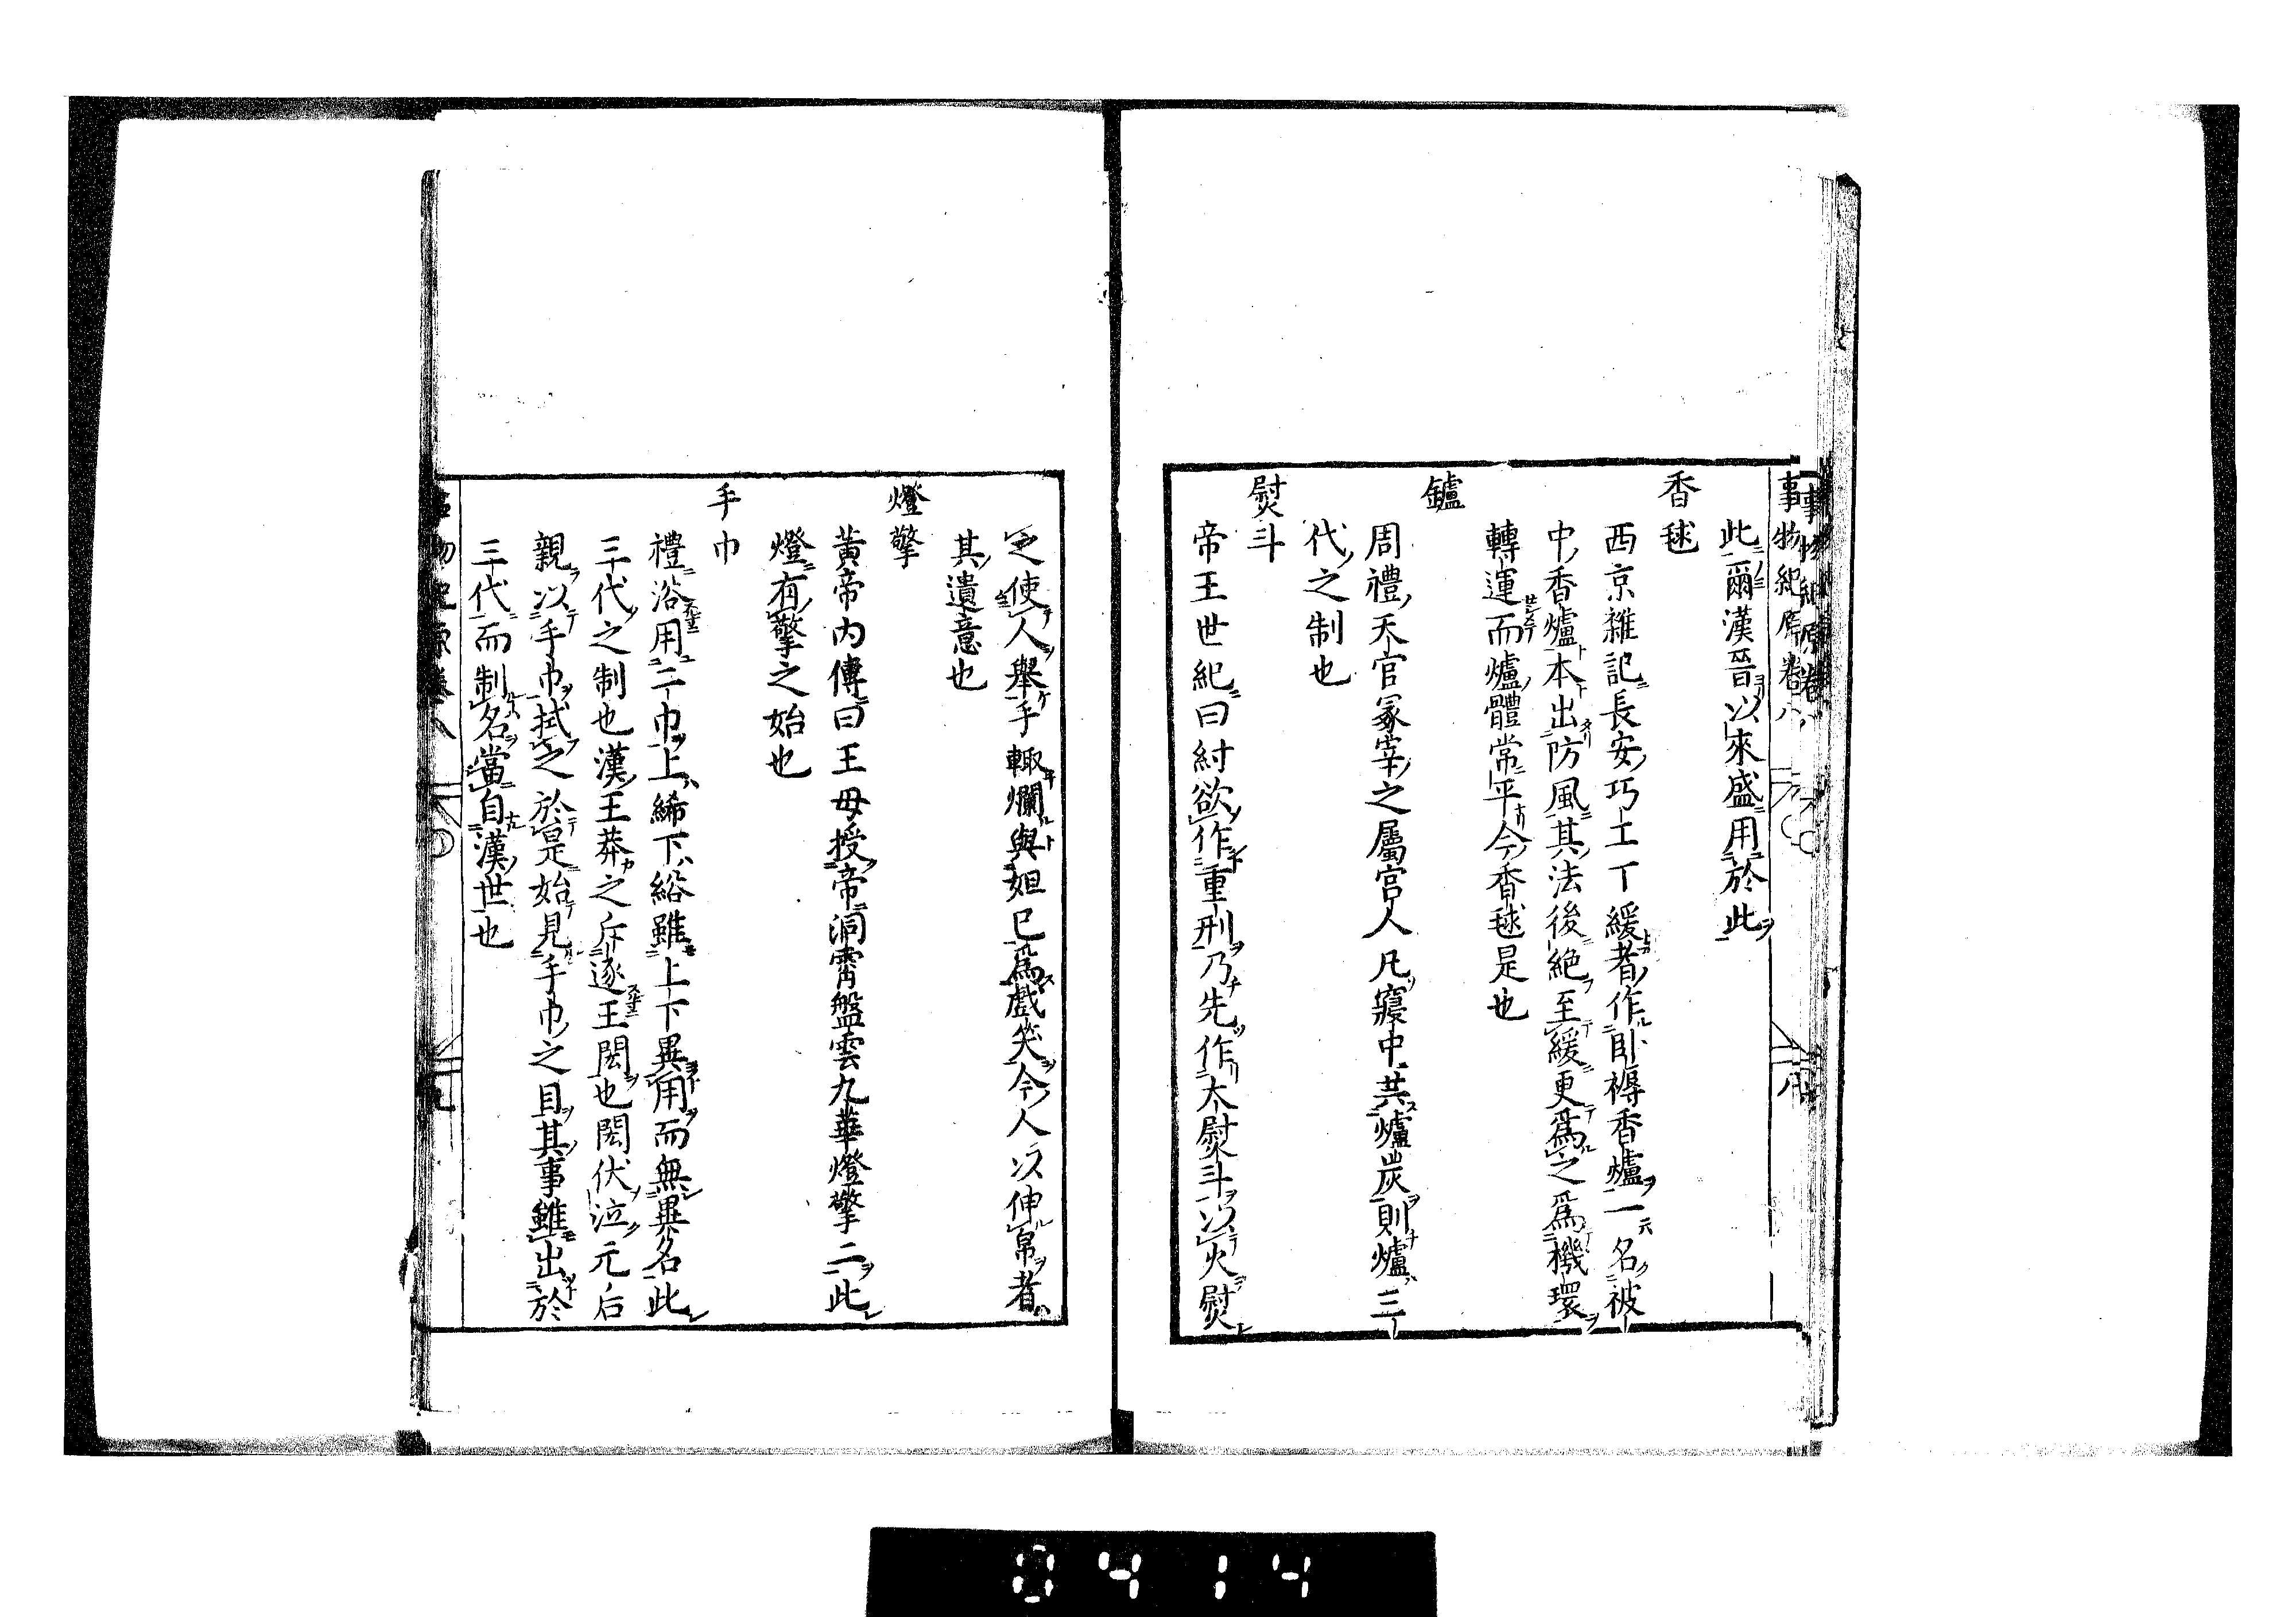 事物紀原卷八
此爾漢晉以來盛用於此
香毬
西京雜記長安巧工丁緩者作臥褥香爐一名被
中香爐本出防風其法後絕至緩更爲之爲機環
轉運而爐體常平今香毬是也
鑪
周禮天官冢宰之屬宮人凡寢中共爐炭則爐三
代之制也
熨斗
帝王世紀曰紂欲作重刑乃先作大熨斗以火熨
之使人舉手輙爛與妲已爲戲笑今人以伸帛者
其遺意也
燈擎
黃帝内傳曰王母授帝洞霄盤雲九華燈擎二此
燈有擎之始也
手巾
禮浴用二巾上絺下綌雖上下異用而無異名此
三代之制也漢王莽之斥逐王閎也閎伏泣元后
親以手巾拭之於是始見手巾之目其事雖出於
三代而制名當自漢世也
0414